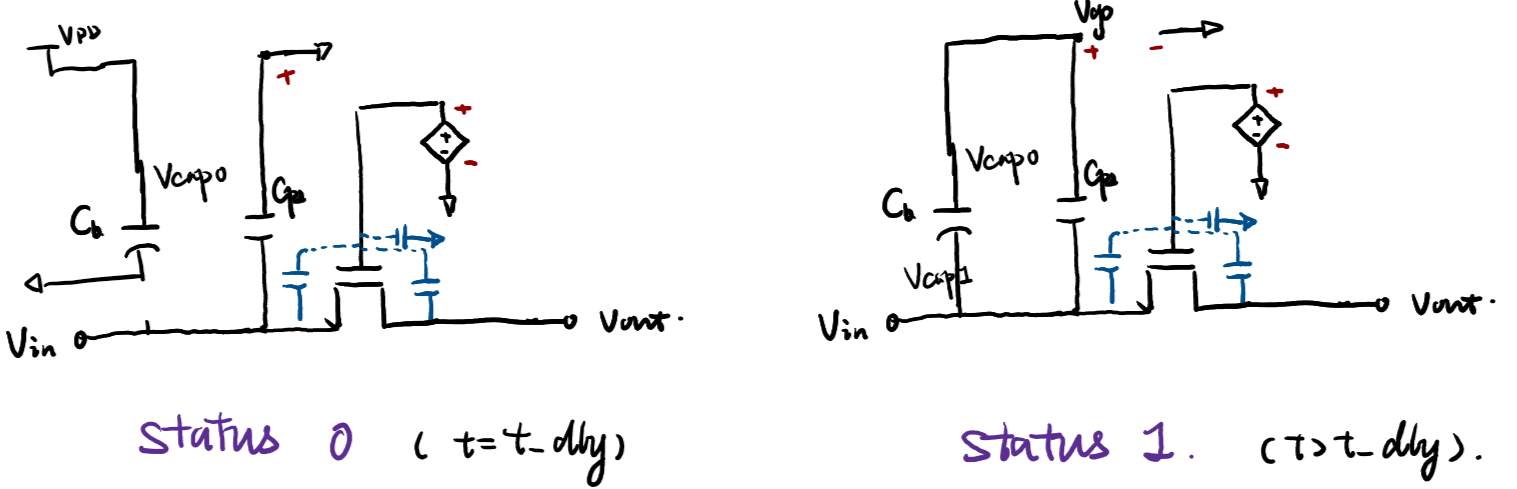 VDD
Vcap0
Cb
Cp2
+
+
+
-
-
Vin
Vout.
Status 0 (t=t_dly)
Vgp
+
-
Vcap0
Cb
Cp2
+
+
-
-
Vcap1
Vin
Vout.
Status 1. (t>t_dly).